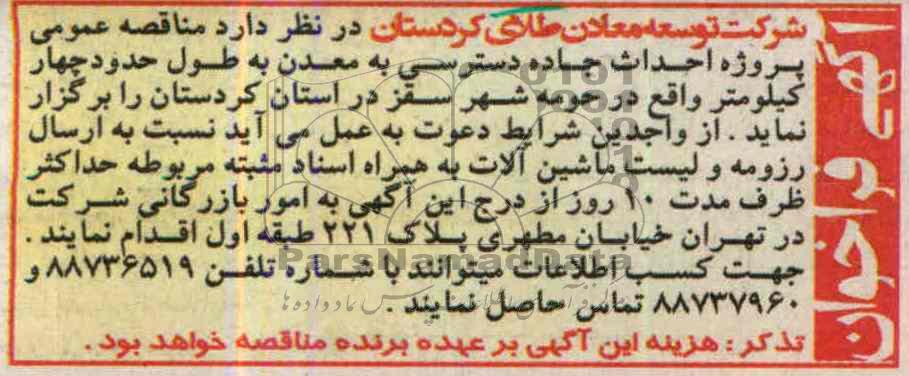 آگهی فراخوان
شرکت توسعه معادن طلای کردستان در نظر دارد مناقصه عمومی
پروژه احداث جاده دسترسی به معدن به طول حدود چهار
کیلومتر واقع در حومه شهر سقز در استان کردستان را برگزار
نماید . از واجدین شرایط دعوت به عمل می آید نسبت به ارسال
رزومه و لیست ماشین آلات به همراه اسناد مثبته مربوطه حداکثر
ظرف مدت ۱۰ روز از درج این آگهی به امور بازرگانی شرکت
در تهران خیابان مطهری پلاک ۲۲۱ طبقه اول اقدام نمایند .
جهت کسب اطلاعات میتوانند با شماره تلفن ۸۸۷۳۶۵۱۹ و
۸۸۷۳۷۹۶۰ تماس حاصل نمایند .
تذکر : هزینه این آگهی بر عهده برنده مناقصه خواهد بود .
ParsNamadData